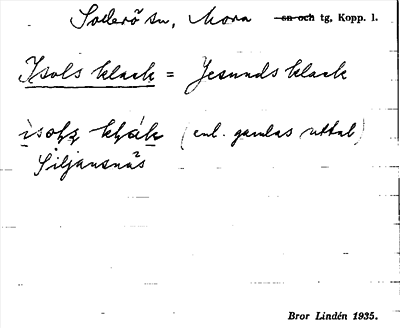 Solerö sn, Mora sn och tg, Kopp. l.
Isols klack = Jesunds klack
isoḷs kḷák (enl. gamlas uttal)
Siljansnäs
Bror Lindén 1935.